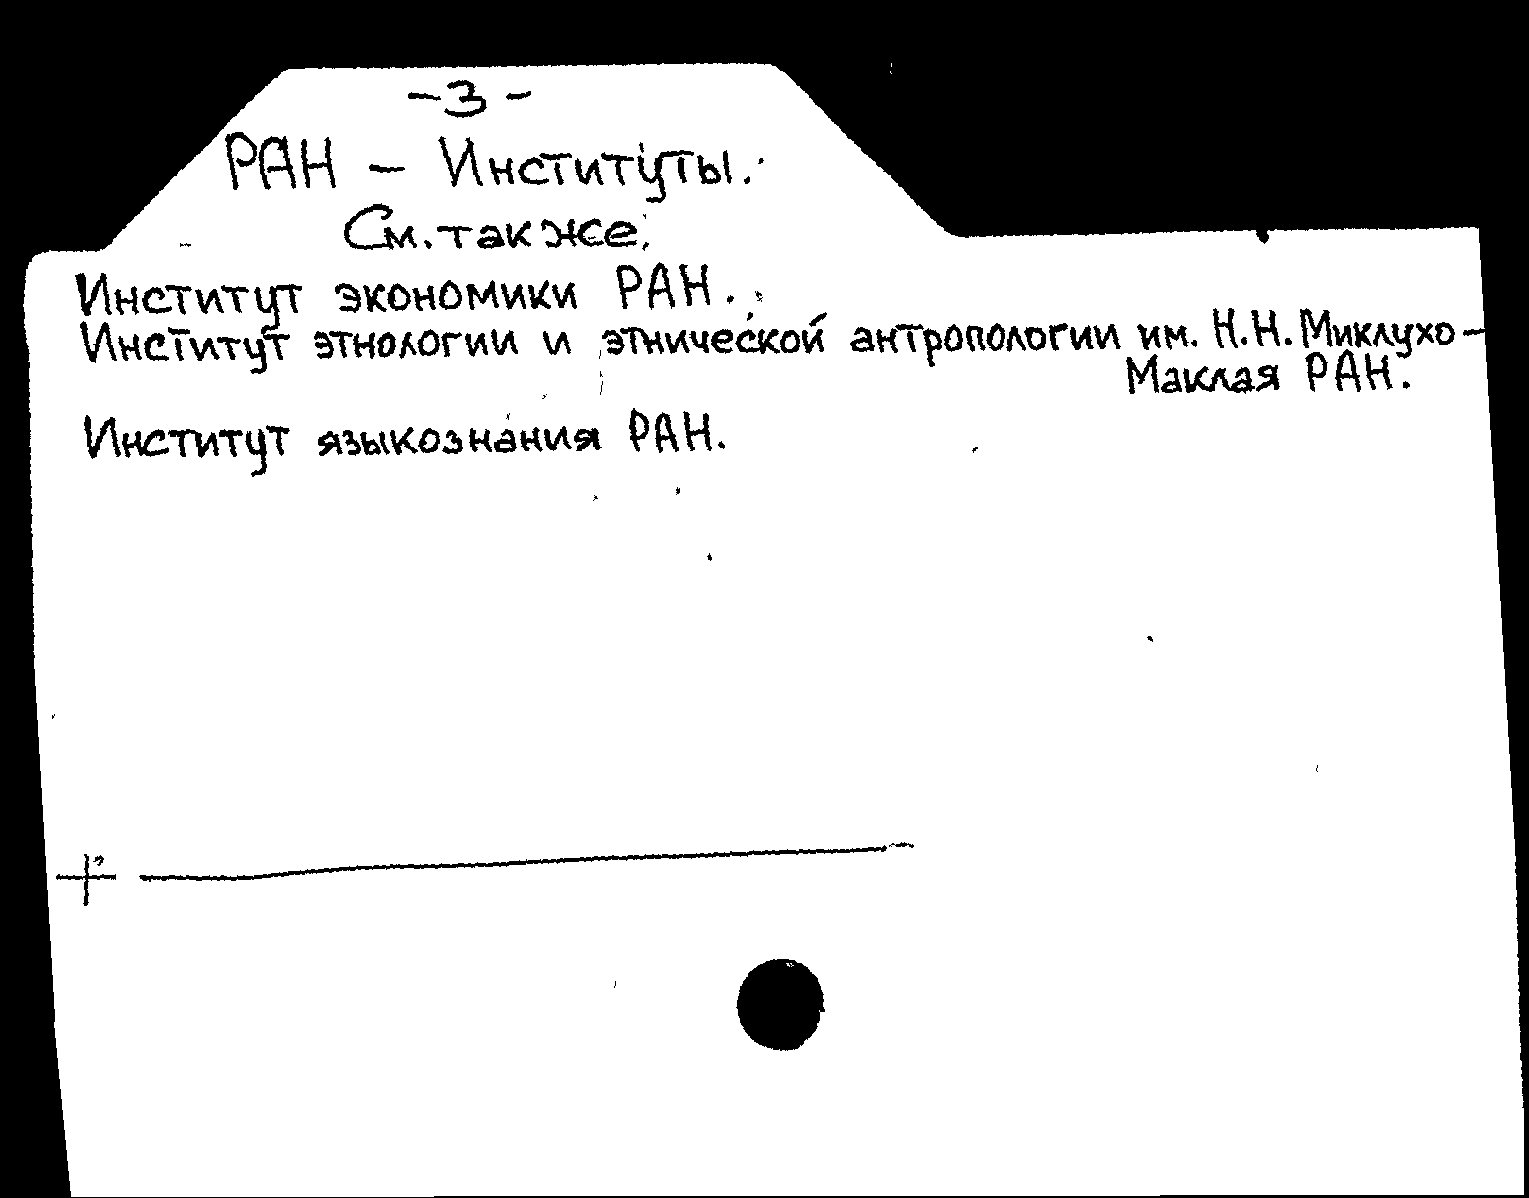 -3-
РАН - Институты.
См. также:
Институт экономики РАН.
Институт этнологии и этнической антропологии им. Н.Н. Миклухо-
Маклая РАН.
Институт языкознания РАН.